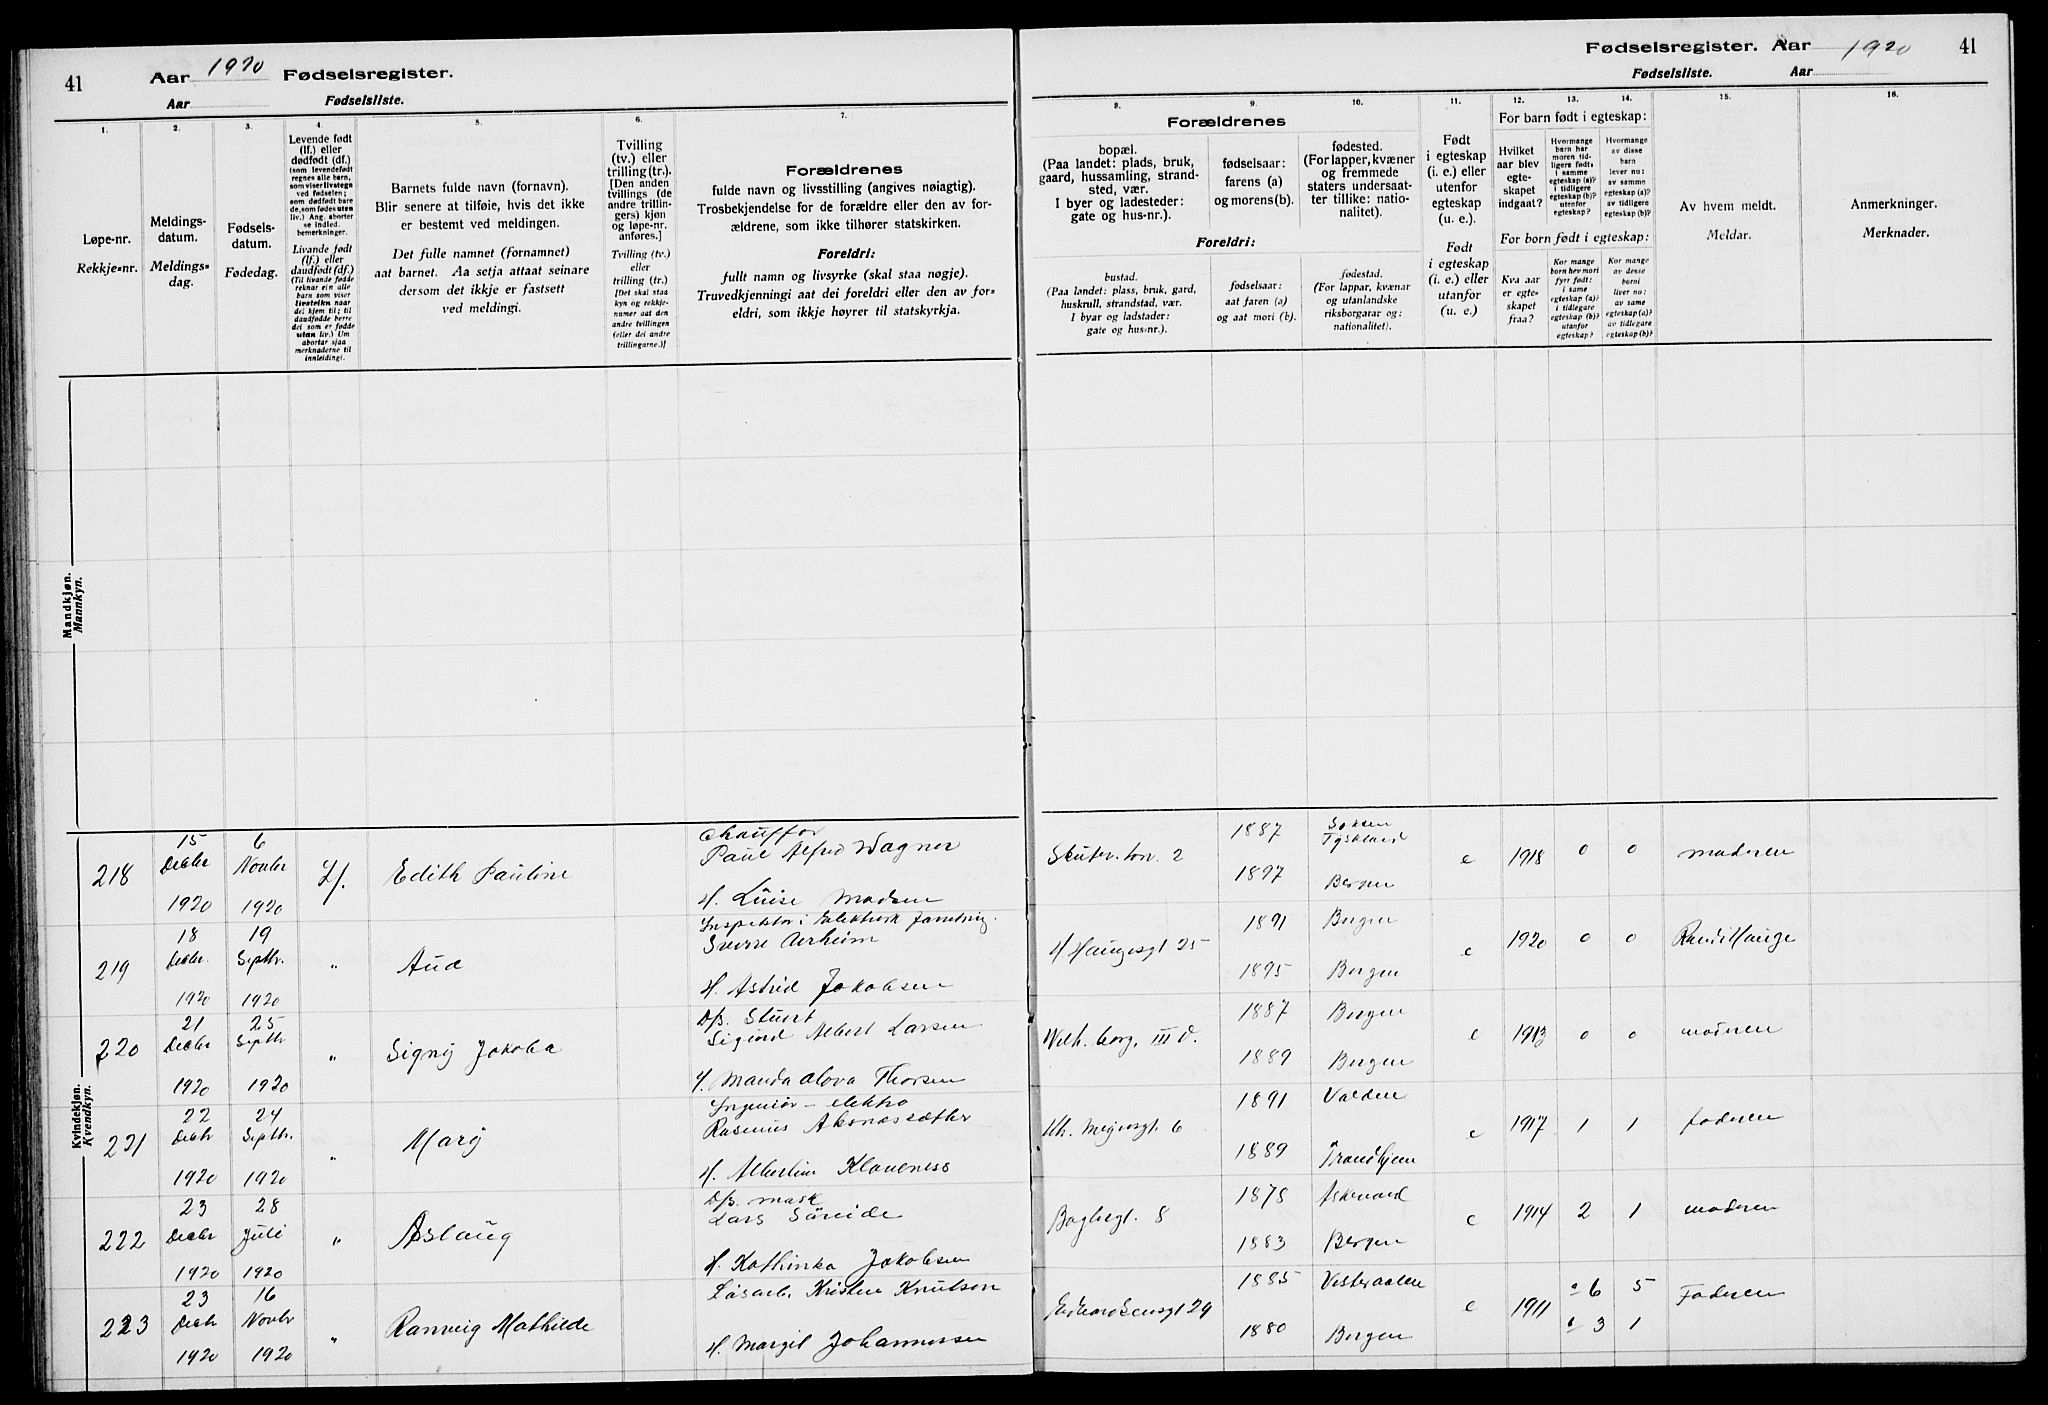 41
Aar 1920 Fødselsregister.
Aar Fødselsliste.
1.
2.
3.
4.
5.
6.
7.
Løpe-nr.
Rekkje-nr.
Meldings-
datum.
Meldings-
dag.
Fødsels-
datum.
Fødedag.
Levende født
(lf.) eller
dødfødt (df.)
(som levendefødt
regnes alle barn,
som viser livstegn
ved fødselen;
som dødfødt bare
de, som fødes uten
liv.) Ang. aborter
se indled.
bemerkninger.
Livande født
(lf.) eller
daudfødt (df.)
(Til livande fødde
reknar ein alle
barn som viser
livsteikn naar
dei kjem til; til
daudfødde berre
dei som er fødde
utan liv.) Um
abortar sjaa
merknaderne til
innleidingi.
Barnets fulde navn (fornavn).
Blir senere at tilføie, hvis det ikke
er bestemt ved meldingen.
Det fulle namnet (fornamnet)
aat barnet. Aa setja attaat seinare
dersom det ikkje er fastsett
ved meldingi.
Tvilling
(tv.) eller
trilling (tr.).
[Den anden
tvillings (de
andre trillin-
gers) kjøn
og løpe-nr.
anføres.]
Tvilling (tv.)
eller
trilling (tr.)
[Det skal staa
kyn og rekkje-
numer aat den
andre tvillingen
(eller dei andre
trillingarne.)]
Forældrenes
fulde navn og livsstilling (angives nøiagtig).
Trosbekjendelse for de forældre eller den av for-
ældrene, som ikke tilhører statskirken.
Foreldri:
fullt namn og livsyrke (skal staa nøgje).
Truvedkjenningi aat dei foreldri eller den av for-
eldri, som ikkje høyrer til statskyrkja.
Mandkjøn.
Mannkyn.
Kvindekjøn.
Kvendkyn.
218
15
Decbr
1920
6
Novbr
1920
Lf.
Edith Pauline
Chauffør
Paul Alfred Wagner
H. Luise Madsen
219
18
Decbr.
1920
19
Septbr.
1920
"
Aud
Inspektør i
Sverre
H. Astrid Jakobsen
220
21
Decbr
1920
25
Septbr
1920
"
Signy Jakoba
D/S. Stuert
Sigurd Albert Larsen
H. Manda Thorsen
221
22
Decbr
1920
24
Septbr.
1920
"
Mary
Ingeniør – elektro
Rasmus
H. Albertine Klaveness
222
23
Decbr
1920
28
Juli
1920
"
Aslaug
D/S. mask
Lars Søreide
H. Kathinka Jakobsen
223
23
Decbr
1920
16
Novbr
1920
"
Ranveig Mathilde
Løsarb. Kristen Knutson
H. Margit Johannessen
Fødselsregister. Aar 1920
41
Fødselsliste. Aar
8.
9.
10.
11.
12.
13.
14.
15.
16.
Forældrenes
bopæl.
(Paa landet: plads, bruk,
gaard, hussamling, strand-
sted, vær.
I byer og ladesteder:
gate og hus-nr.).
fødselsaar:
farens (a)
og morens (b).
fødested.
(For lapper, kvæner
og fremmede
staters undersaat-
ter tillike: natio-
nalitet).
Foreldri:
bustad.
(Paa landet: plass, bruk, gard,
huskrull, strandstad, vær.
I byar og ladstader:
gate og hus-nr.).
fødselsaar:
aat faren (a)
og aat mori (b).
fødestad.
(For lappar, kvænar
og utanlandske
riksborgarar og:
nationalitet).
Født
i egteskap
(i. e.) eller
utenfor
egteskap
(u. e.).
Født
i egteskap
(i. e.) eller
utanfor
(u. e.)
For barn født i egteskap:
Hvilket
aar blev
egte-
skapet
indgaat?
Hvormange
barn har
moren tid-
ligere født:
i samme
egteskap (a)?
i tidligere
egteskap (b)?
utenfor
egteskap?
Hvormange
av disse
barn
lever nu:
av samme
egteskap (a)?
av tidligere
egteskap (b)?
For born født i egteskap:
Kva aar
er egte-
skapet
fraa?
Kor mange
born hev mori
fyrr født:
i same
egteskap (a)?
i tidlegare
egteskap (b)?
utanfor
egteskap?
Kor mange
av desse
borni
liver no:
av same
egteskap (a)?
av tidlegare
egteskap (b)?
Av hvem meldt.
Meldar.
Anmerkninger.
Merknader.
Skutev. torv. 2
1887
1897
Saksen
Tyskland
Bergen
e
1918
0
0
moderen
H Haugesgt 25
1891
1895
Bergen
Bergen
e
1920
0
0
Randi Hauge
Wilh. borg. III d.
1887
1889
Bergen
Bergen
e
1913
0
0
moderen
Kh. Meyersgt 6
1891
1889
Volden
Trondhjem
e
1917
1
1
faderen
8
1878
1883
Askevold
Bergen
e
1914
2
1
moderen
29
1885
1880
Vesteraalen
Bergen
e
1911
a 6
b 3
5
1
Faderen